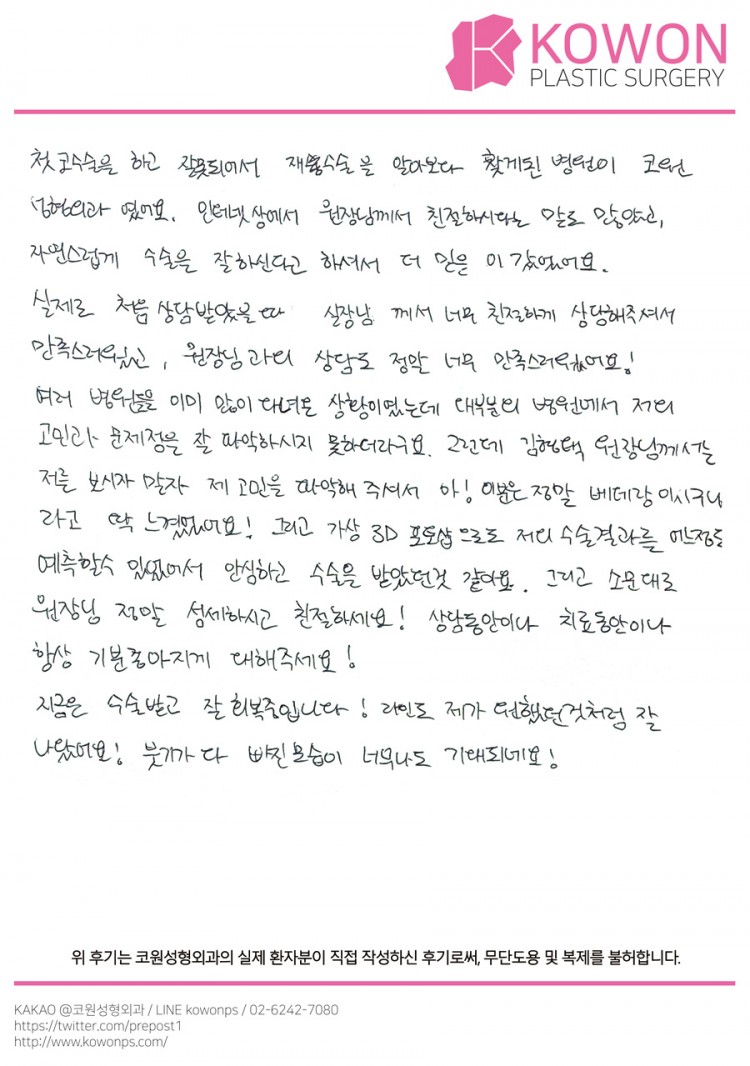 KOWON
PLASTIC SURGERY
첫 코수술을 하고 잘못되어서 재수술을 알아보다 찾게된 병원이 코원
성형외과 였어요. 인터넷상에서 원장님께서 친절하시다는 말도 많았고,
자연스럽게 수술을 잘하신다고 하셔서 더 믿음이 갔었어요.
실제로 처음 상담받았을때 실장님 께서 너무 친절하게 상담해주셔서
만족스러웠고, 원장님과의 상담도 정말 너무 만족스러웠어요!
여러 병원들을 이미 많이 다녀온 상황이였는데 대부분의 병원에서 저의
고민과 문제점을 잘 파악하시지 못하더라구요. 그런데 김형택 원장님께서는
저를 보시자 말자 제 고민을 파악해 주셔서 아! 이분은 정말 베테랑이시구나
라고 딱 느꼈었어요! 그리고 가상 3D 포토샵으로도 저의 수술결과를 어느정도
예측할수 있었어서 안심하고 수술을 받았던것 같아요. 그리고 소문대로
원장님 정말 섬세하시고 친절하세요! 상담동안이나 치료동안이나
항상 기분좋아지게 대해주세요!
지금은 수술받고 잘 회복중입니다! 라인도 제가 원했던것처럼 잘
나왔어요! 붓기가 다 빠진 모습이 너무나도 기대되네요!
위 후기는 코원성형외과의 실제 환자분이 직접 작성하신 후기로써, 무단도용 및 복제를 불허합니다.
KAKAO @코원성형외과 / LINE kowonps / 02-6242-7080
https://twitter.com/prepost1
http://www.kowonps.com/